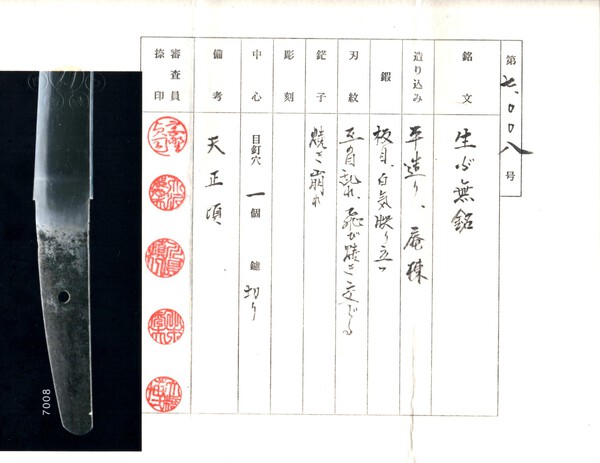 第七、〇〇八号
銘文 生ぶ無銘
造り込み 平造り、庵棟
鍜 板目、白気映り立つ
刃紋 互の目乱れ、飛び焼き交じる
鋩子 焼き崩れ
彫刻
中心 目釘穴 一個 鑢 切り
備考 天正頃
審査員
捺印
7008